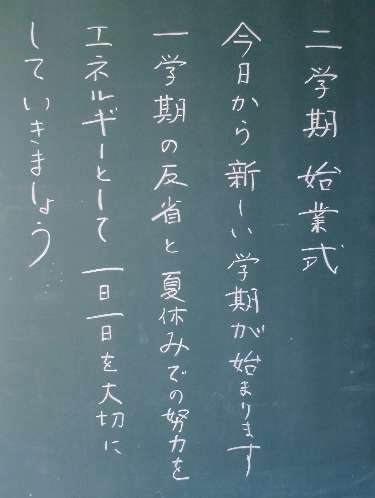 二学期 始業式
今日から新しい学期が始まります
一学期の反省と夏休みでの努力を
エネルギーとして 一日一日を大切に
していきましょう